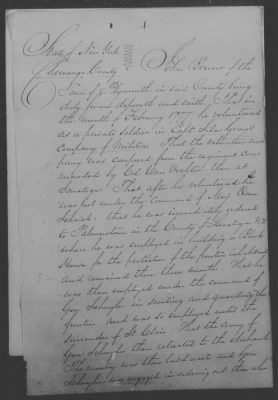 State of New York
Chenango County
John Brower of the
Town of Plymouth in said County being
duly sworn deposeth and saith, That in
the month of February 1777 he volunteered
as a private Soldier in Capt Silas Grays
Company of Militia. That the volunteer and
was composed from the regiment com
manded by Col Van Vechten then at
Saratoga. That after he volunteered he
was put under the command of Maj Van
Schaick. that he was immediately ordered
to Palmerston in the County of Saratoga N.Y.
when he was employed in building a Block
House for the protection of the frontier inhabitants
and remained there three months. That he
was then employed under the command of
Gen Schuyler in scouting and guarding the
frontier and was so employed until the
surrender of St Clair. That the army of
Gen Schuyler then retreated to the
The country was then laid waste and Gen
Schuyler was engaged in ordering out the